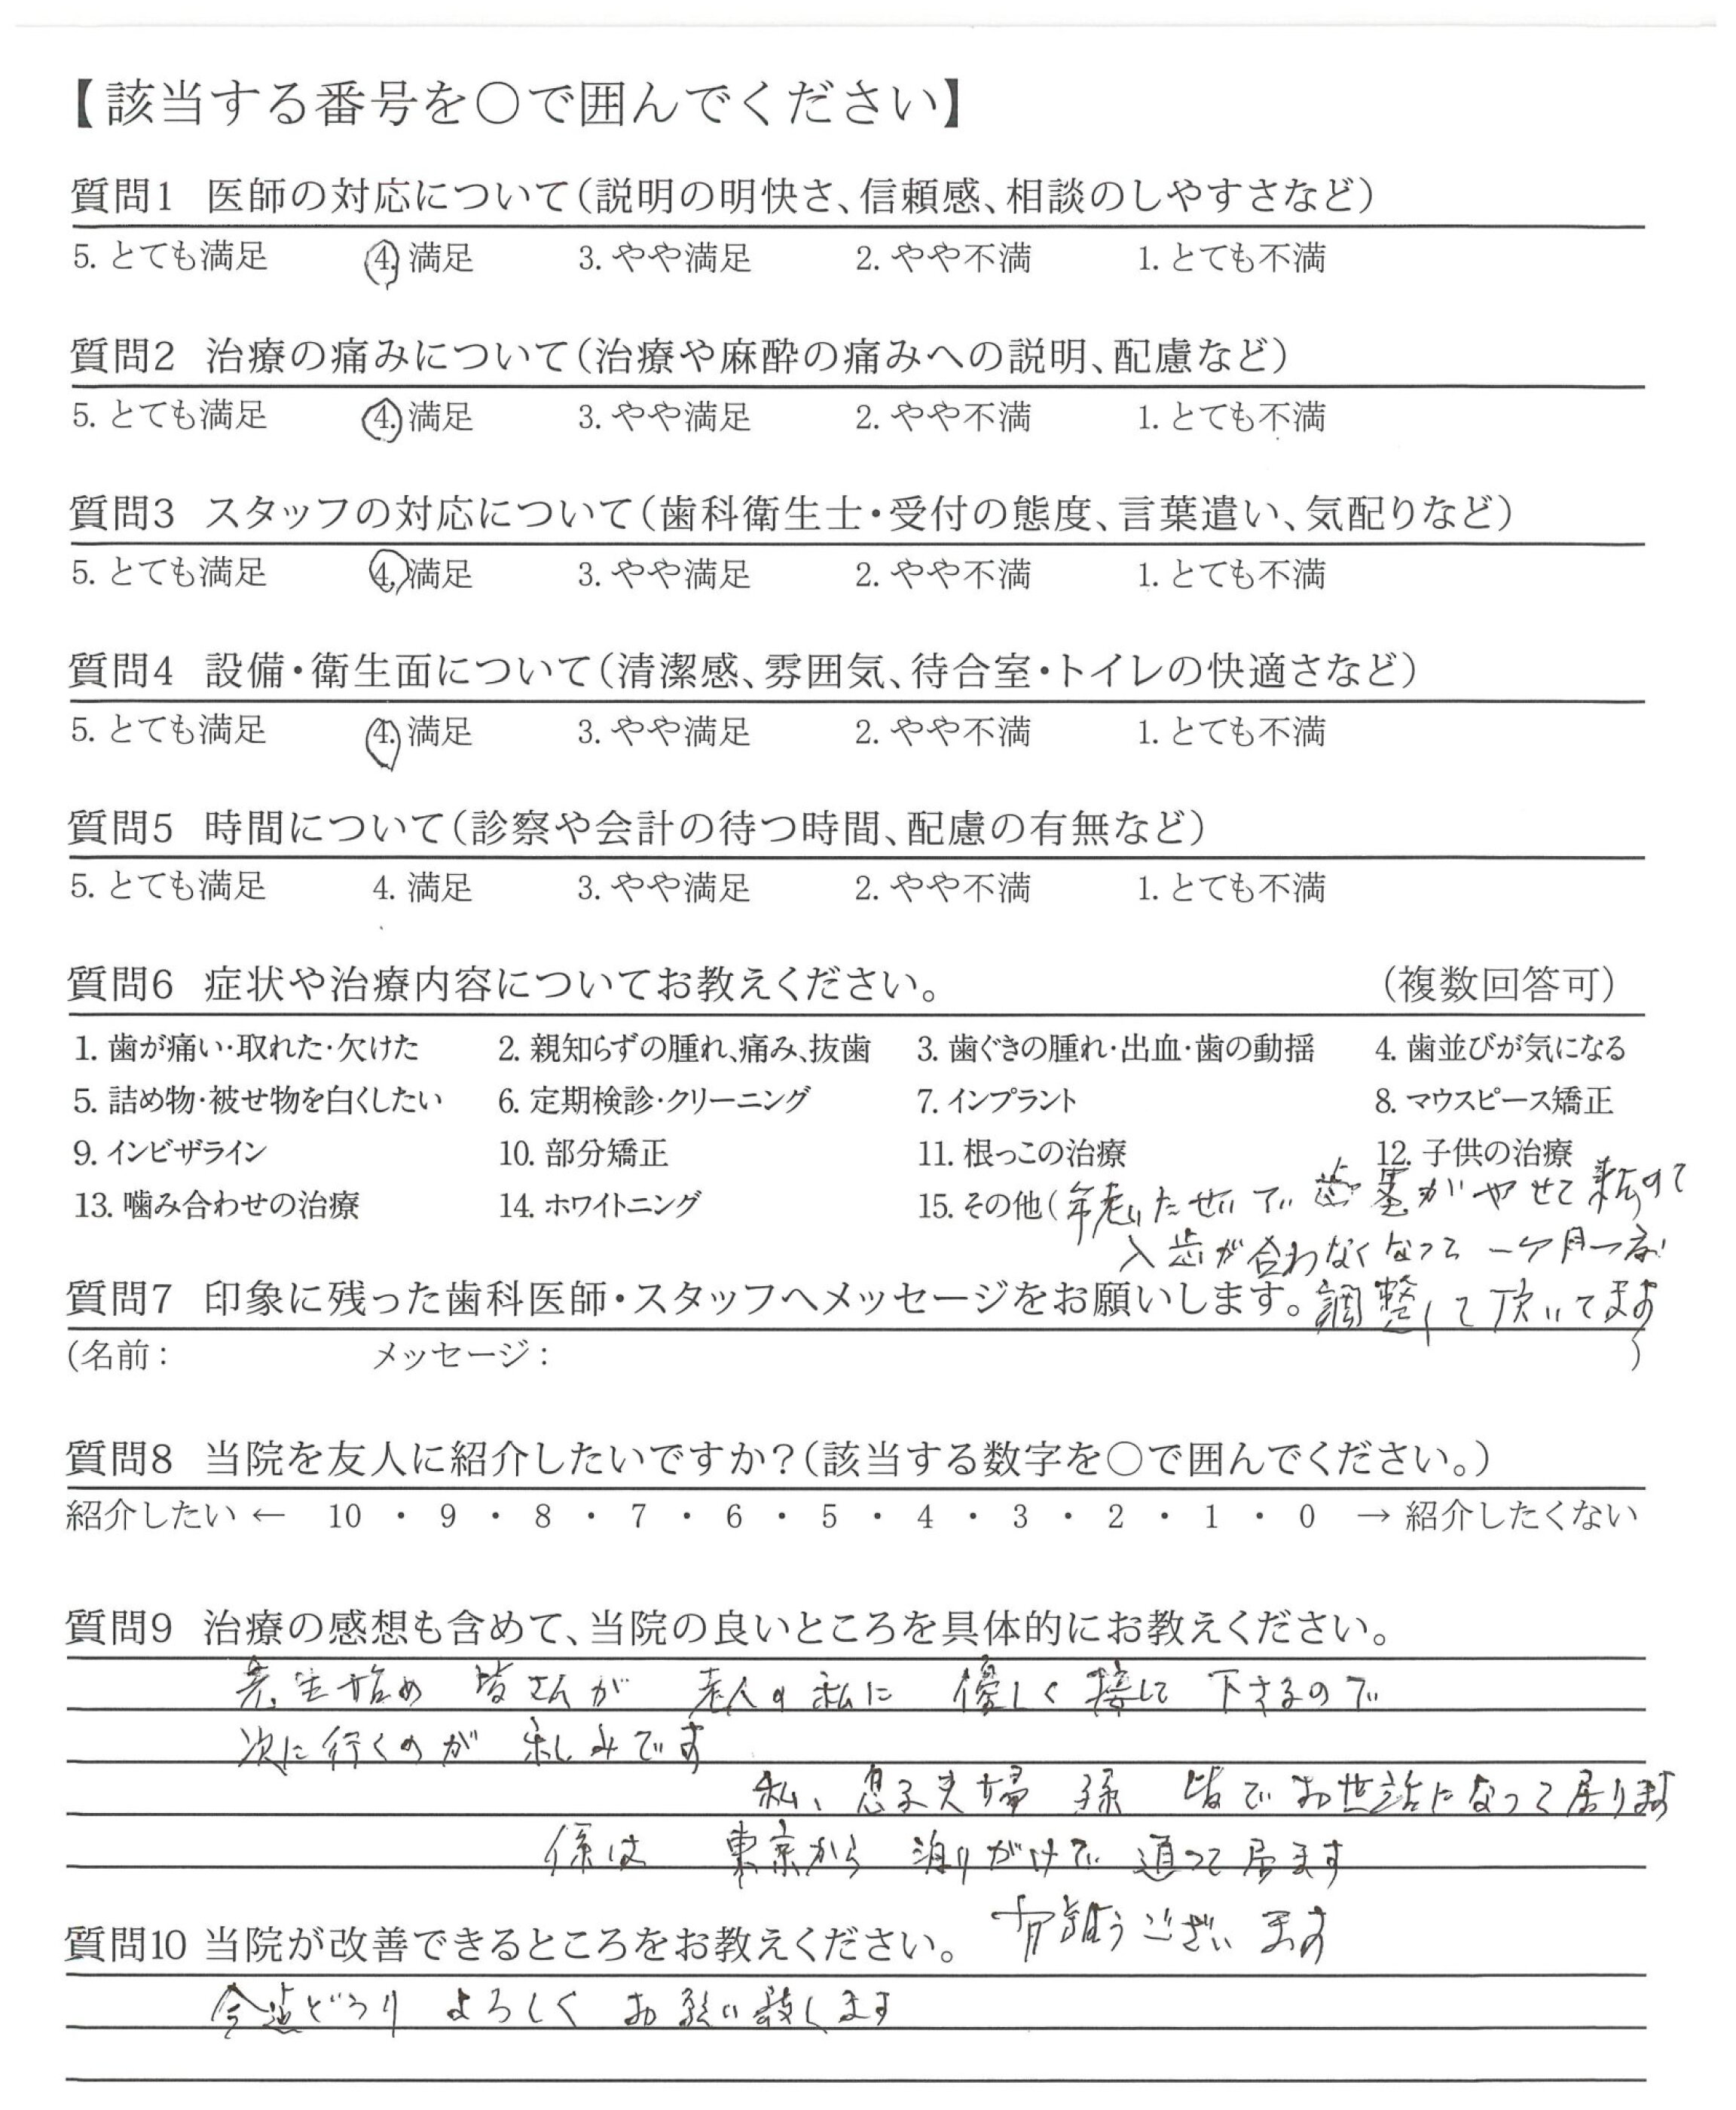 【該当する番号を〇で囲んでください】
質問1 医師の対応について(説明の明快さ、信頼感、相談のしやすさなど)
5. とても満足 4. 満足 3. やや満足 2. やや不満 1. とても不満
質問2 治療の痛みについて(治療や麻酔の痛みへの説明、配慮など)
5. とても満足 4. 満足 3. やや満足 2. やや不満 1. とても不満
質問3 スタッフの対応について(歯科衛生士・受付の態度、言葉遣い、気配りなど)
5. とても満足 4. 満足 3. やや満足 2. やや不満 1. とても不満
質問4 設備・衛生面について(清潔感、雰囲気、待合室・トイレの快適さなど)
5. とても満足 4. 満足 3. やや満足 2. やや不満 1. とても不満
質問5 時間について(診察や会計の待つ時間、配慮の有無など)
5. とても満足 4. 満足 3. やや満足 2. やや不満 1. とても不満
質問6 症状や治療内容についてお教えください。 (複数回答可)
1. 歯が痛い・取れた・欠けた 2. 親知らずの腫れ、痛み、抜歯 3. 歯ぐきの腫れ・出血・歯の動揺 4. 歯並びが気になる
5. 詰め物・被せ物を白くしたい 6. 定期検診・クリーニング 7. インプラント 8. マウスピース矯正
9. インビザライン 10. 部分矯正 11. 根っこの治療 12. 子供の治療
13. 噛み合わせの治療 14. ホワイトニング 15. その他(年老いたせいで 歯茎がやせて来るので
入歯が合わなくなって 一ケ月一度
質問7 印象に残った歯科医師・スタッフへメッセージをお願いします。調整して頂いてます
(名前: メッセージ: )
質問8 当院を友人に紹介したいですか?(該当する数字を〇で囲んでください。)
紹介したい ← 10 ・ 9 ・ 8 ・ 7 ・ 6 ・ 5 ・ 4 ・ 3 ・ 2 ・ 1 ・ 0 → 紹介したくない
質問9 治療の感想も含めて、当院の良いところを具体的にお教えください。
先生始め 皆さんが 老人の私に 優しく接して 下さるので
次に行くのが 楽しみです
私、息子夫婦 孫 皆でお世話になって居ります
係は 東京から 泊りがけで 通って居ます
有難うございます
質問10 当院が改善できるところをお教えください。
今迄どうり よろしく お願い致します